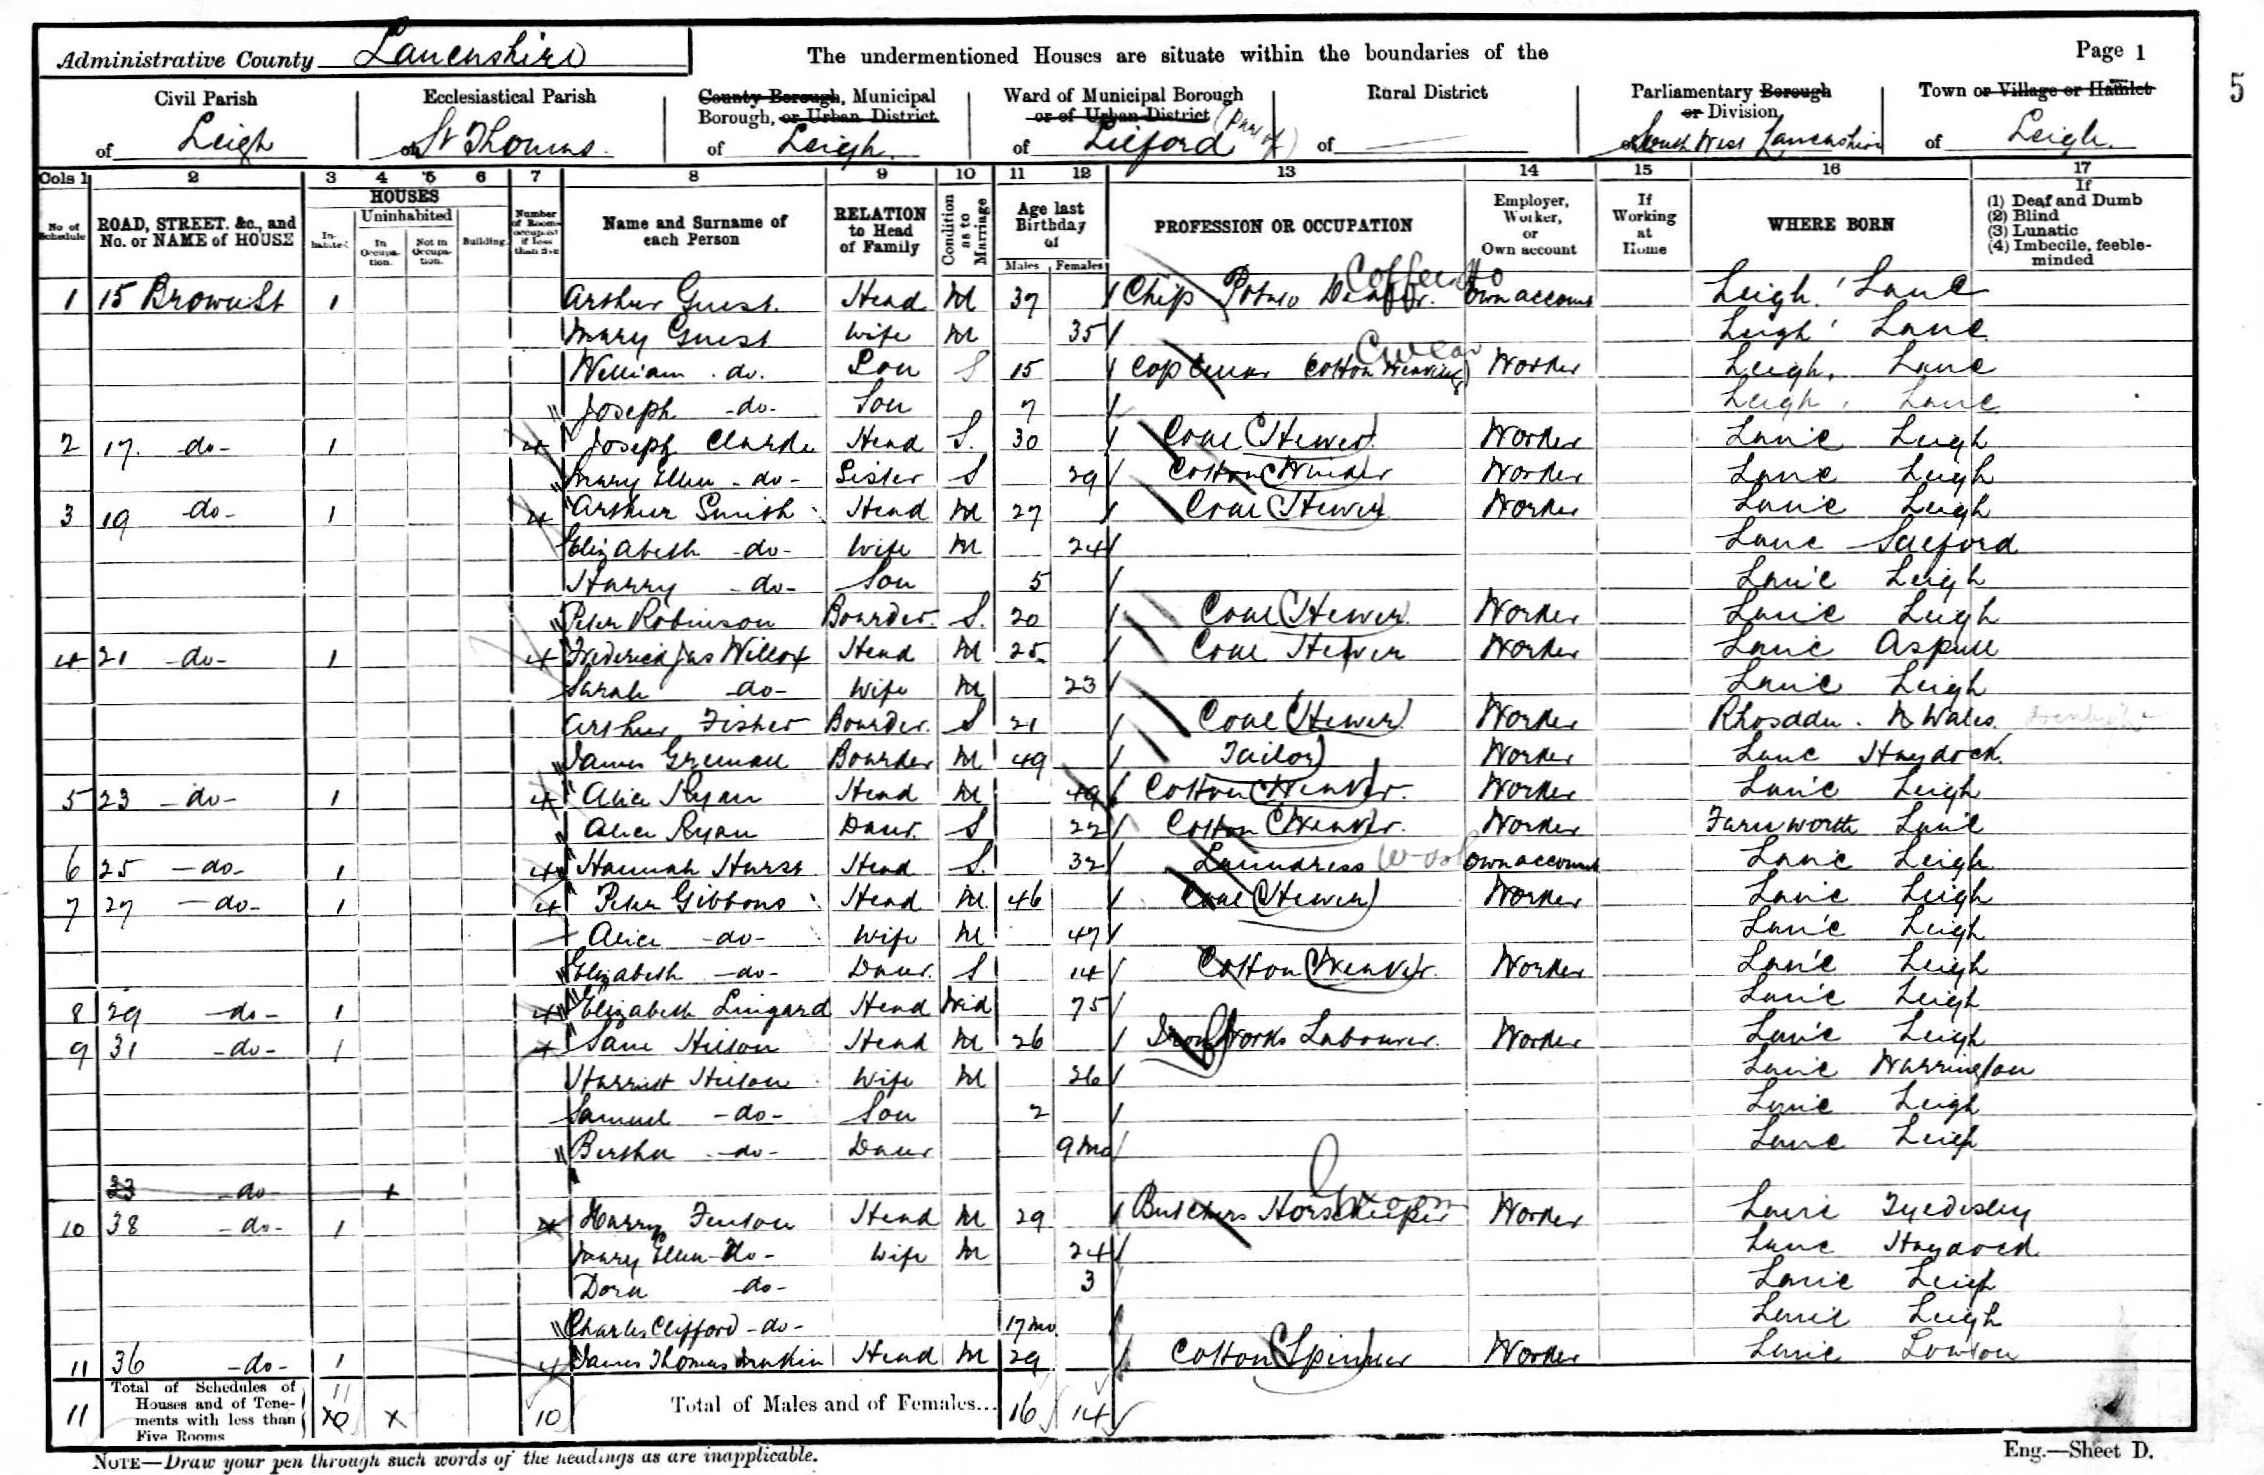 Administrative County Lancashire
The undermentioned Houses are situate within the boundaries of the
Page 1
5
Civil Parish of Leigh
Ecclesiastical Parish of St Thomas
County Borough, Municipal Borough, or Urban District of Leigh
Ward of Municipal Borough or of Urban District of Lilford (part of)
Rural District of
Parliamentary Borough or Division of South West Lancashire
Town or Village or Hamlet of Leigh
Cols 1 2 3 4 5 6 7 8 9 10 11 12 13 14 15 16 17
No of Schedule
ROAD, STREET, &c., and No. or NAME of HOUSE
HOUSES
Inhabited
Uninhabited
In Occupation.
Not in Occupation.
Building
Number of Rooms occupied if less than five
Name and Surname of each Person
RELATION to Head of Family
Condition as to Marriage
Age last Birthday of
Males Females
PROFESSION OR OCCUPATION
Employer, Worker, or Own account
If Working at Home
WHERE BORN
If
(1) Deaf and Dumb
(2) Blind
(3) Lunatic
(4) Imbecile, feeble-minded
1 15 Brown St 1 Arthur Guest Head M 37 Chip Potato Dealer Own account Leigh Lanc
Mary Guest Wife M 35 Leigh Lanc
William do. Son S 15 Cotton Weaving Worker Leigh, Lanc
Joseph -do- Son 7 Leigh, Lanc
2 17 -do- 1 4 Joseph Clarke Head S. 30 Coal Hewer Worker Lanc Leigh
Mary Ellen -do- Sister S 29 Cotton Winder Worker Lanc Leigh
3 19 do- 1 4 Arthur Smith Head M 27 Coal Hewer Worker Lanc Leigh
Elizabeth -do- Wife M 24 Lanc Salford
Harry -do- Son 5 Lanc Leigh
Peter Robinson Boarder S. 20 Coal Hewer Worker Lanc Leigh
4 21 -do- 1 4 Frederick Jas Willox Head M 25 Coal Hewer Worker Lanc Aspull
Sarah -do- Wife M 23 Lanc Leigh
Arthur Fisher Boarder S 21 Coal Hewer Worker Rhosddu. N Wales
James Boarder M 49 Tailor Worker Lanc Haydock
5 23 -do- 1 4 Alice Ryan Head M 49 Cotton Weaver Worker Lanc Leigh
Alice Ryan Daur. S 22 Cotton Weaver Worker Farnworth Lanc
6 25 -do- 1 4 Hannah Hurst Head S. 32 Laundress Wash Own account Lanc Leigh
7 27 -do- 1 4 Peter Gibbons Head M 46 Coal Hewer Worker Lanc Leigh
Alice -do- Wife M 47 Lanc Leigh
Elizabeth -do- Daur. S 14 Cotton Weaver Worker Lanc Leigh
8 29 -do- 1 4 Elizabeth Lingard Head Wid 75 Lanc Leigh
9 31 -do- 1 4 Saml Hilson Head M 26 Iron Works Labourer Worker Lanc Leigh
Harriet Hilson Wife M 26 Lanc Warrington
Samuel -do- Son 2 Lanc Leigh
Bertha -do- Daur 9 mo Lanc Leigh
33 -do-
10 38 -do- 1 4 Harry Fenton Head M 29 Butchers Horsekeeper Groom Worker Lanc Tyldesley
Mary Ellen -do- Wife M 24 Lanc Haydock
Dora do- 3 Lanc Leigh
Charles Clifford -do- 17 mo Lanc Leigh
11 36 -do- 1 4 James Thomas Head M 29 Cotton Spinner Worker Lanc Lowton
11 Total of Schedules of Houses and of Tenements with less than Five Rooms 11 10 x 10 Total of Males and of Females... 16 14
NOTE—Draw your pen through such words of the headings as are inapplicable.
Eng.—Sheet D.